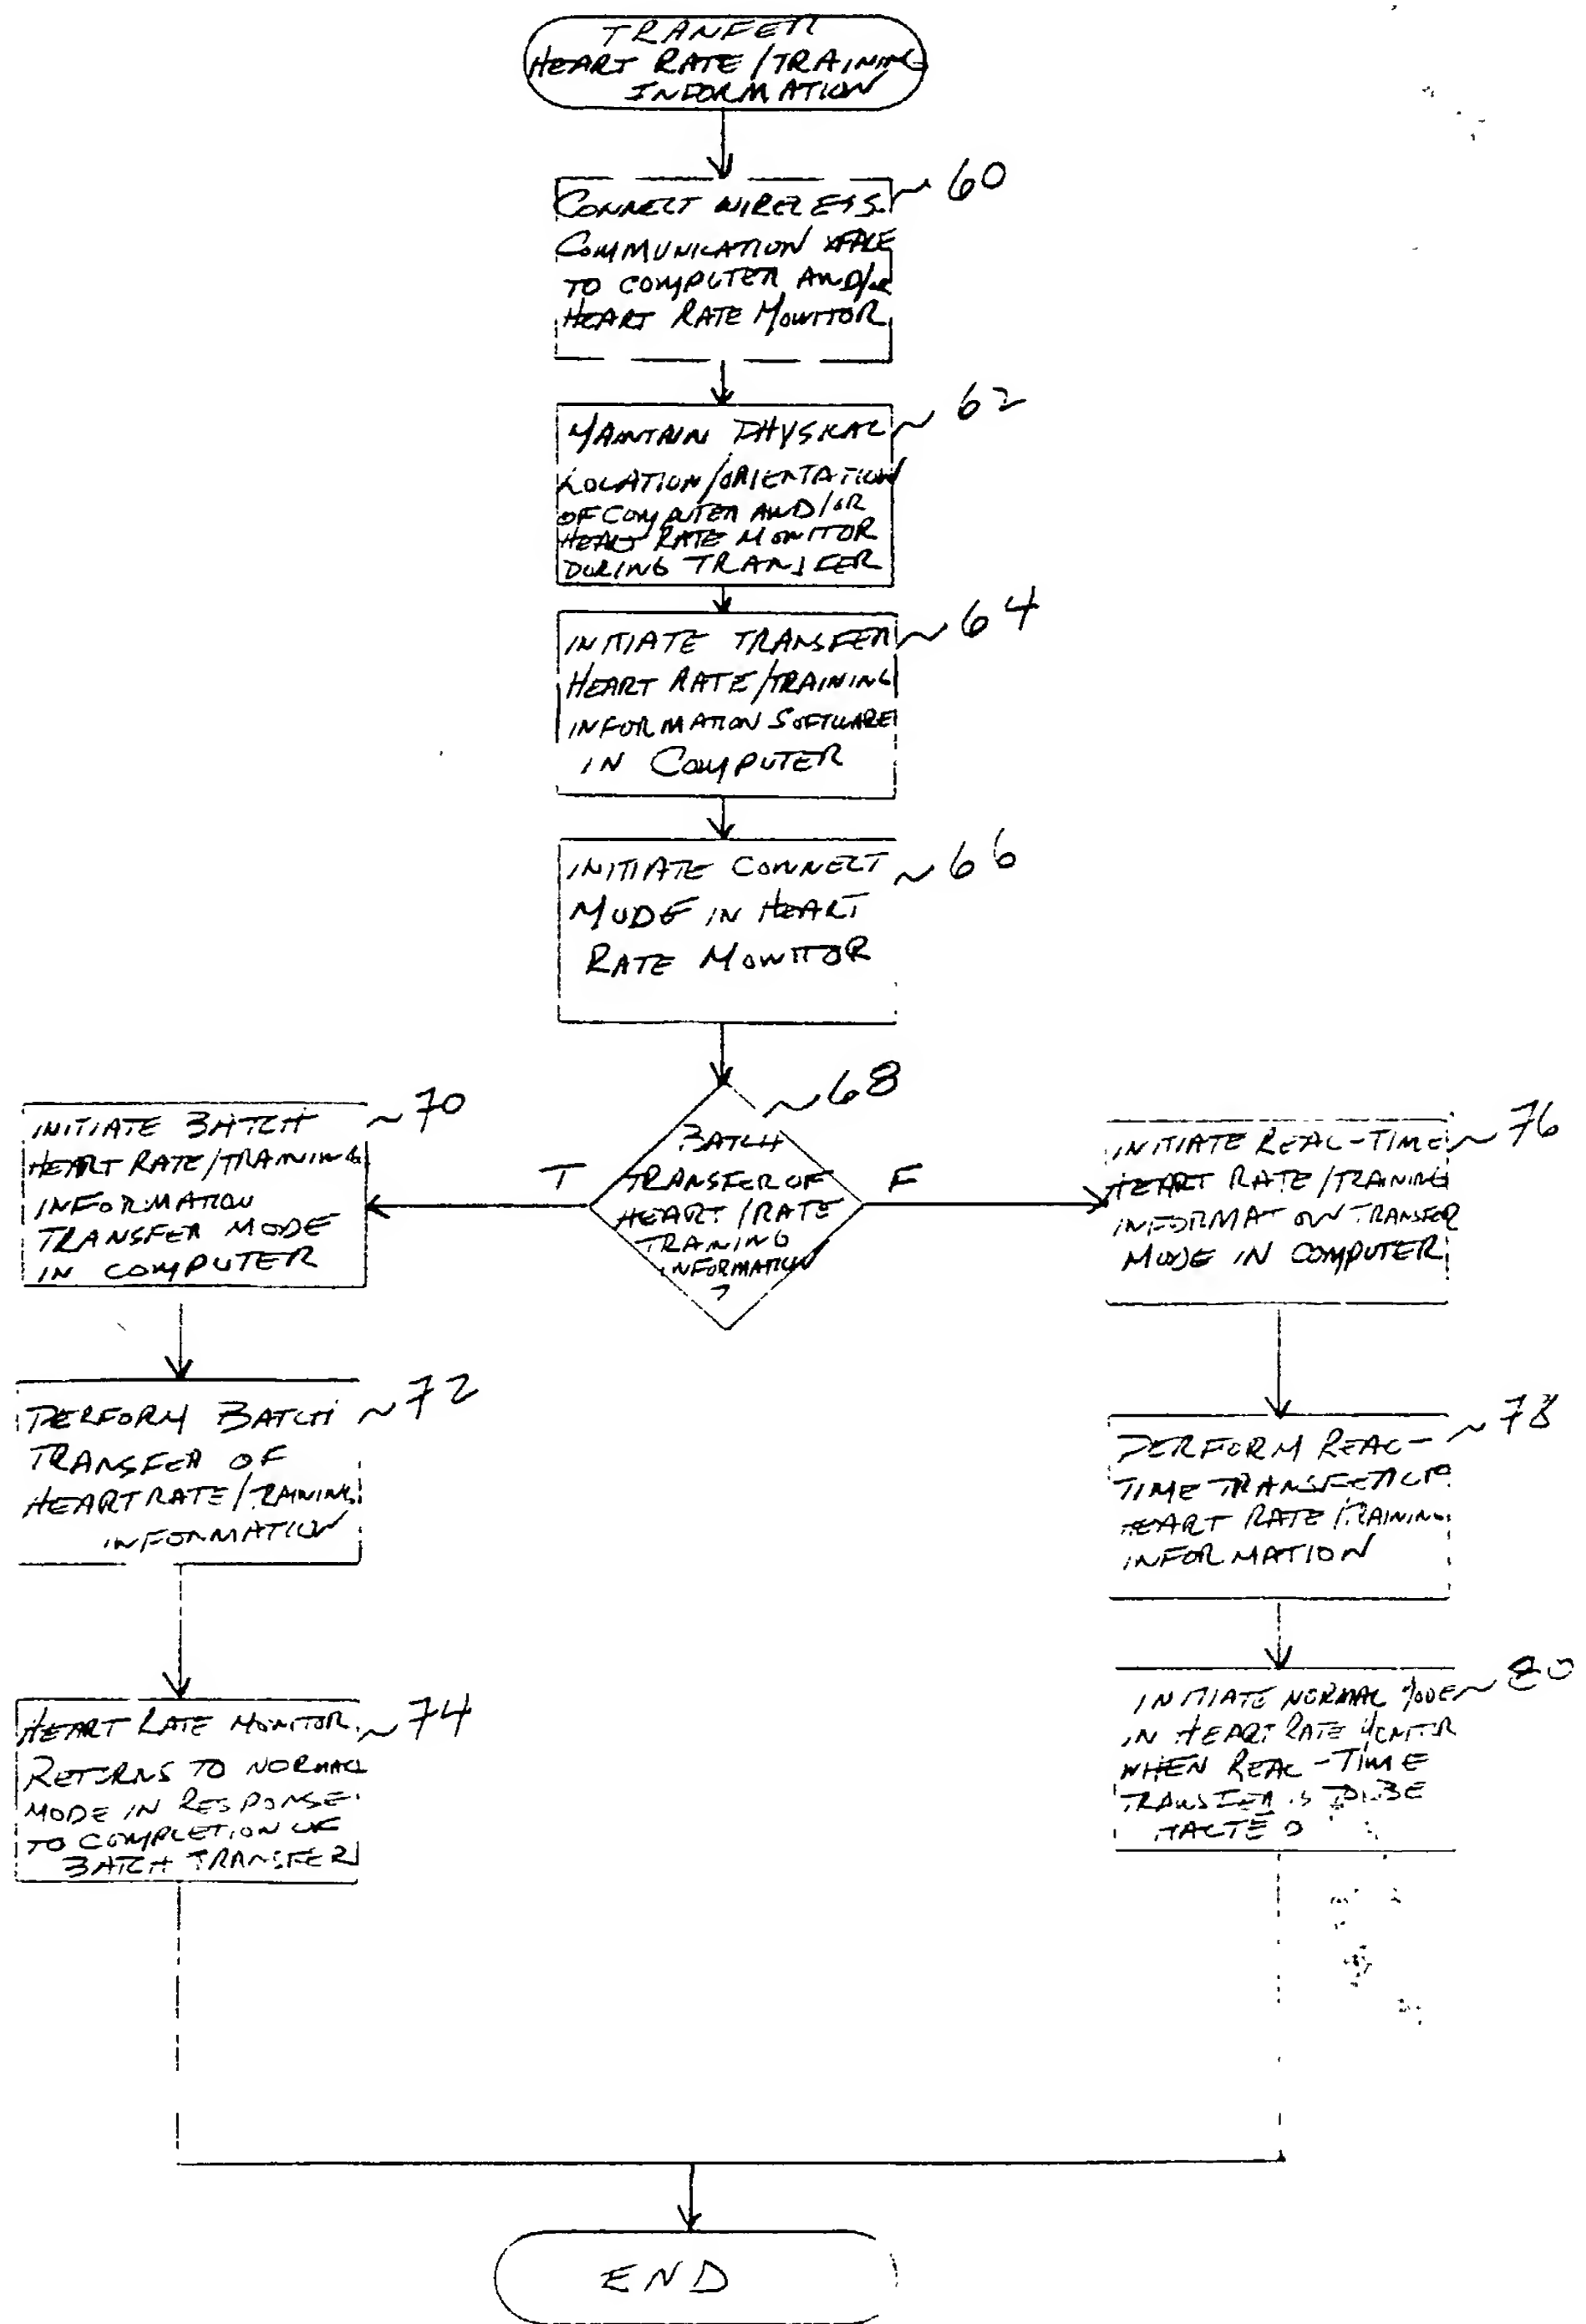 TRANFER
HEART RATE/TRAINING
INFORMATION
60
CONNECT WIRELESS
COMMUNICATION XFACE
TO COMPUTER AND/OR
HEART RATE MONITOR
62
MAINTAIN PHYSICAL
LOCATION/ORIENTATION
OF COMPUTER AND/OR
HEART RATE MONITOR
DURING TRANSFER
64
INITIATE TRANSFER
HEART RATE/TRAINING
INFORMATION SOFTWARE
IN COMPUTER
66
INITIATE CONNECT
MODE IN HEART
RATE MONITOR
68
BATCH
TRANSFER OF
HEART/RATE
TRAINING
INFORMATION
?
T
F
70
INITIATE BATCH
HEART RATE/TRAINING
INFORMATION
TRANSFER MODE
IN COMPUTER
72
PERFORM BATCH
TRANSFER OF
HEART RATE/TRAINING
INFORMATION
74
HEART RATE MONITOR
RETURNS TO NORMAL
MODE IN RESPONSE
TO COMPLETION OF
BATCH TRANSFER
76
INITIATE REAL-TIME
HEART RATE/TRAINING
INFORMATION TRANSFER
MODE IN COMPUTER
78
PERFORM REAL-
TIME TRANSFER OF
HEART RATE/TRAINING
INFORMATION
80
INITIATE NORMAL MODE
IN HEART RATE MONITOR
WHEN REAL-TIME
TRANSFER IS TO BE
END